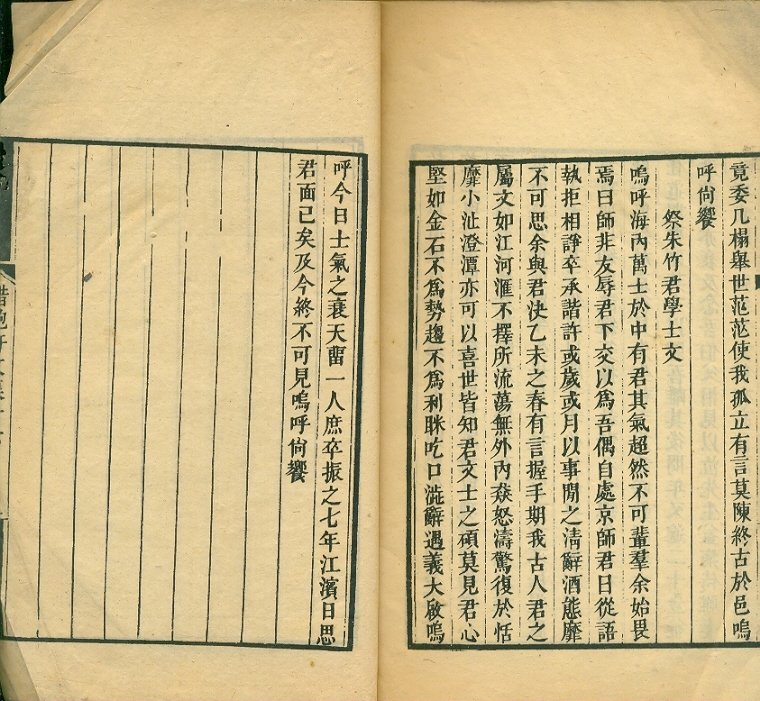 竟委几榻舉世茫茫使我孤立有言莫陳終古於邑嗚
呼尙饗
祭朱竹君學士文
嗚呼海內萬士於中有君其氣超然不可輩羣余始畏
焉曰師非友辱君下交以爲吾偶自處京師君日從語
執拒相諍卒承諧許或歲或月以事閒之淸辭酒態靡
不可思余與君決乙未之春有言握手期我古人君之
屬文如江河滙不擇所流蕩無外內猋怒濤驚復於恬
靡小沚澄潭亦可以喜世皆知君文士之碩莫見君心
堅如金石不爲勢趨不爲利眯吃口澁辭遇義大啟嗚
呼今日士氣之衰天畱一人庶卒振之七年江濱日思
君面已矣及今終不可見嗚呼尙饗
惜抱軒文集